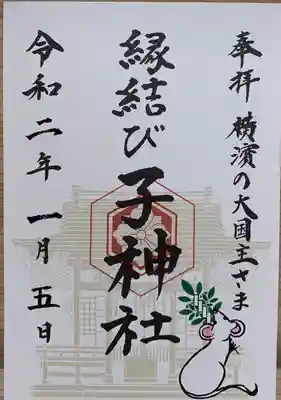 奉拝 横濱の大国主さま
縁結び子神社
令和二年一月五日